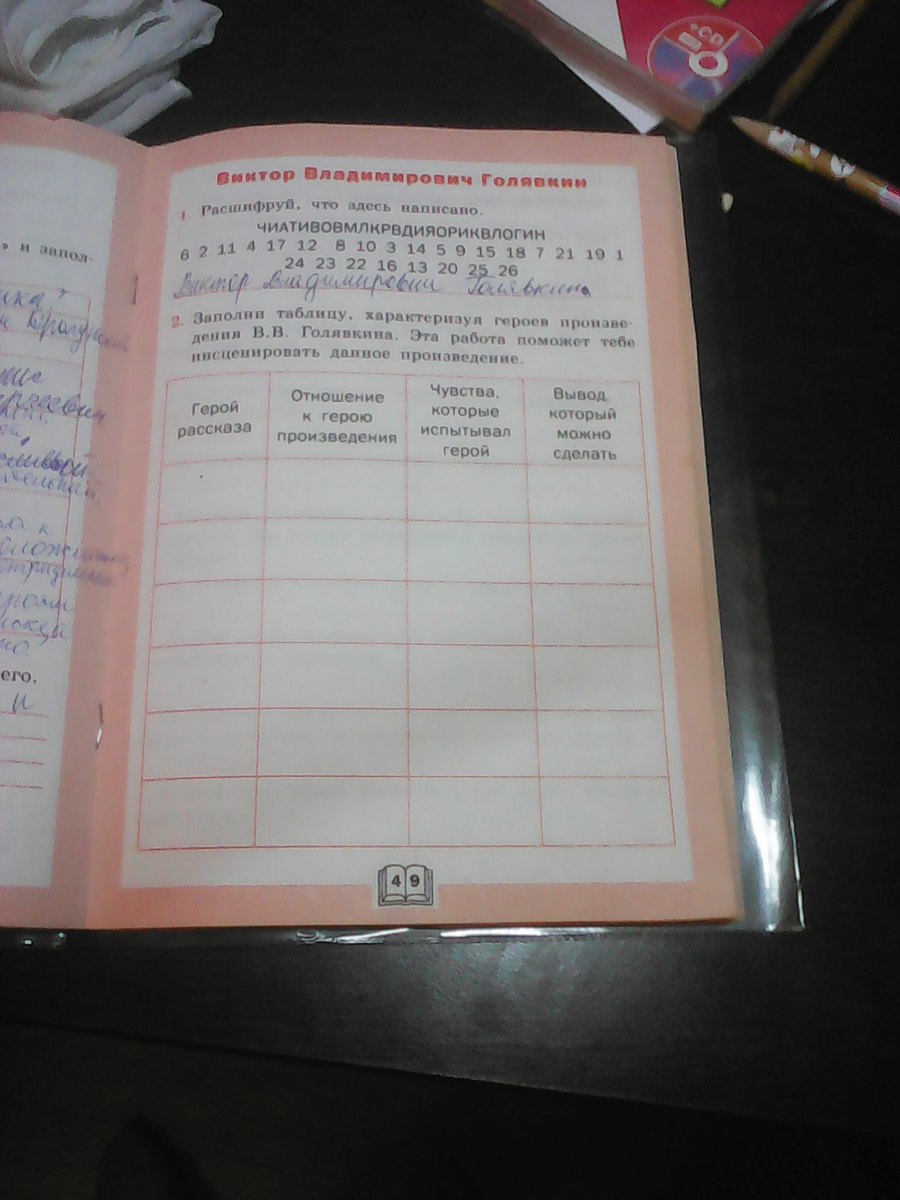 +CD
Виктор Владимирович Голявкин
1. Расшифруй, что здесь написано.
ЧИАТИВОВМЛКРВДИЯОРИКВЛОГИН
6 2 11 4 17 12 8 10 3 14 5 9 15 18 7 21 19 1
24 23 22 16 13 20 25 26
Виктор Владимирович Голявкин
2. Заполни таблицу, характеризуя героев произве-
дения В.В. Голявкина. Эта работа поможет тебе
инсценировать данное произведение.
Герой
рассказа
Отношение
к герою
произведения
Чувства,
которые
испытывал
герой
Вывод,
который
можно
сделать
и запол-
его.
и
49